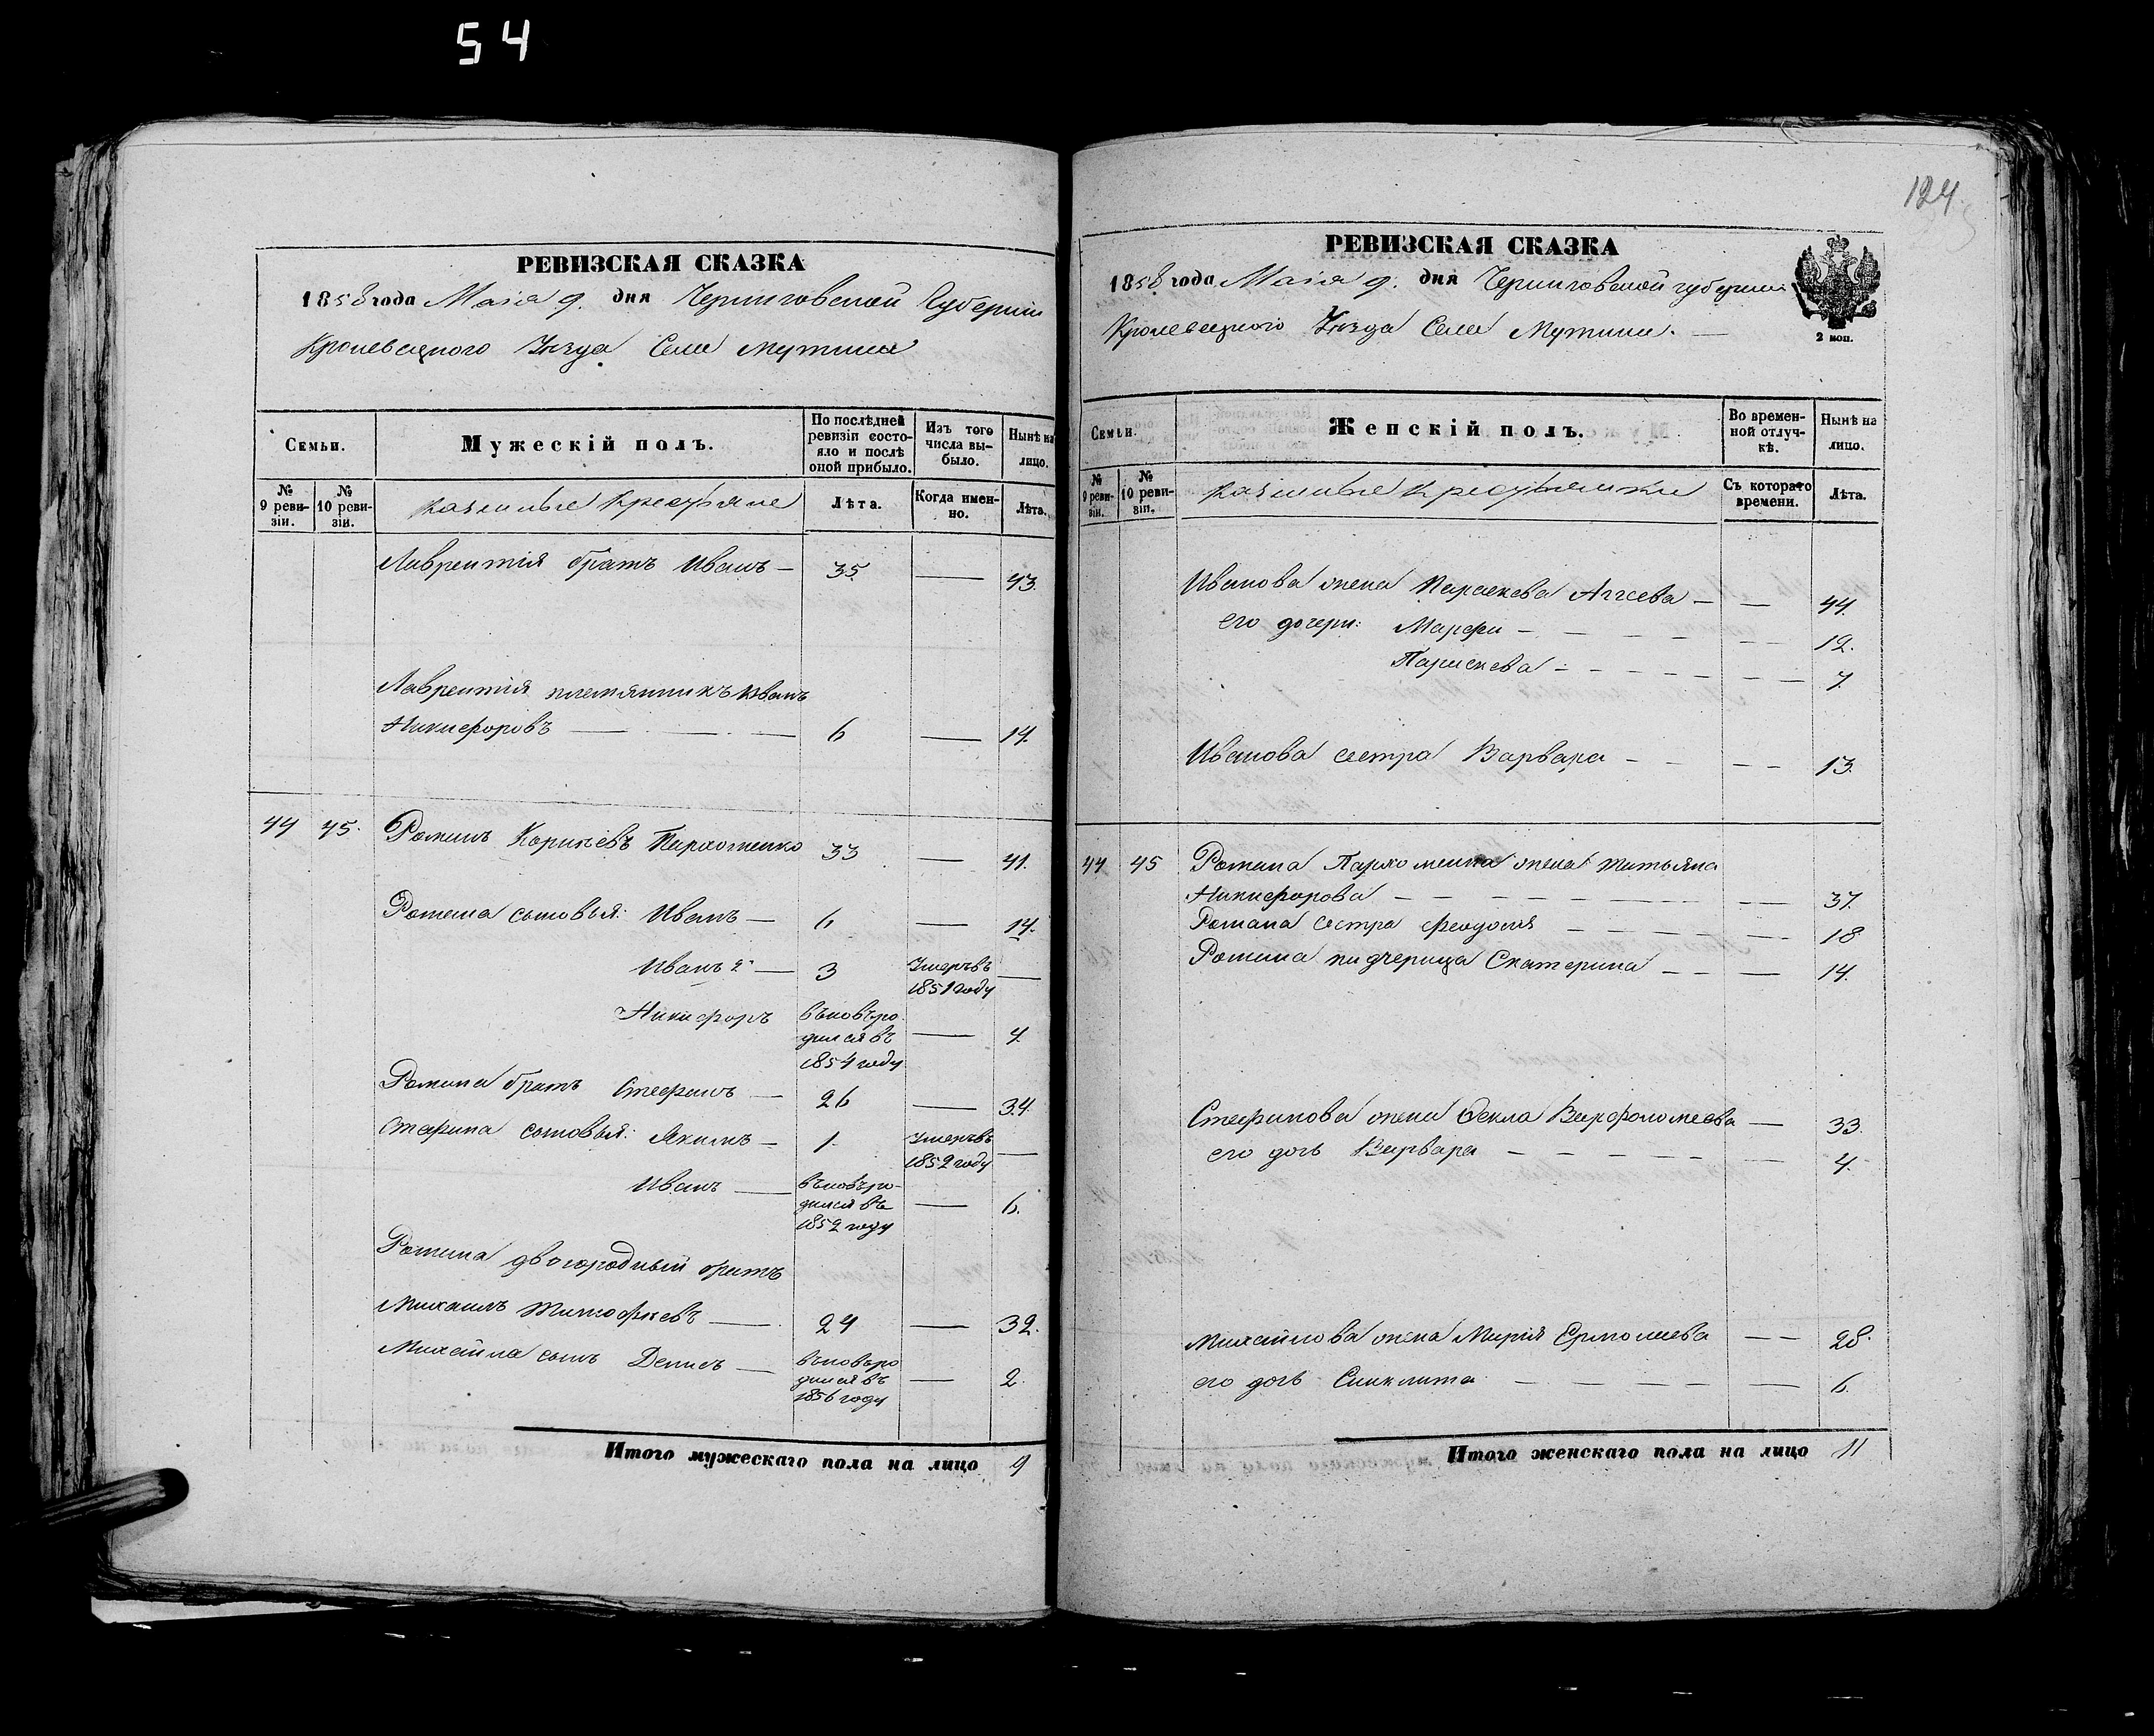 54
РЕВИЗСКАЯ СКАЗКА
1858 года Маія 9. дня Черниговской Губерніи
Кролевецкого Уѣзда Села Мутина
Семьи.
Мужескій полъ.
По послѣдней ревизіи состояло и послѣ оной прибыло.
Изъ того числа выбыло.
Нынѣ на лицо.
№ 9 ревизіи.
№ 10 ревизіи.
казенные крестьяне
Лѣта.
Когда именно.
Лѣта.
Лаврентія братъ Иванъ — 35 — 43.
Лаврентія племянникъ Иванъ
Никифоровъ — 6 — 14.
44 45. Романъ Корнѣевъ Пархоменко 33 — 41.
Романа сыновья: Иванъ — 6 — 14.
Иванъ 2й — 3 Умеръ въ 1851 году —
Никифоръ вновь родился въ 1854 году — 4
Романа братъ Стефанъ — 26 — 34.
Стефана сыновья: Якимъ — 1. Умеръ въ 1852 году —
Иванъ — вновь родился въ 1852 году — 6.
Романа двоюродный братъ
Михаилъ Тимофѣевъ — 24 — 32.
Михайла сынъ Денисъ — вновь родился въ 1856 году — 2.
Итого мужескаго пола на лицо 9
124
РЕВИЗСКАЯ СКАЗКА
1858 года Маія 9. дня Черниговской губерніи
Кролевецкого Уѣзда Села Мутина. —
2 коп.
Семьи.
Женскій полъ.
Во временной отлучкѣ.
Нынѣ на лицо.
№ 9 ревизіи.
№ 10 ревизіи.
казенные крестьянки
Съ котораго времени.
Лѣта.
Иванова жена Параскева Аггеева — — 44.
его дочери: Марфа — — 12.
Параскева — — 7.
Иванова сестра Варвара — — 13.
44 45 Романа Пархоменка жена Татьяна
Никифорова — — 37.
Романа сестра Феодосія — — 18
Романа падчерица Екатерина — — 14.
Стефанова жена Фекла Варфоломеева — 33.
его дочь Варвара — — 4.
Михайлова жена Марія Ермолаева — — 28.
его дочь Синклита — — 6.
Итого женскаго пола на лицо 11